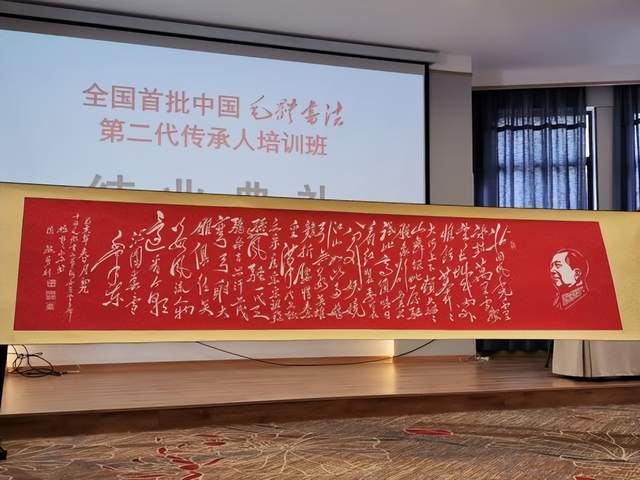 全国首批中国毛体书法
第二代传承人培训班
结业典礼
北国风光千里
冰封万里雪飘
望长城内外
惟余莽莽
大河上下顿失滔滔
山舞银蛇原驰
蜡象欲与天公
试比高须晴日
看红装素裹
分外妖娆
江山如此多娇
引无数英雄
竞折腰惜秦皇
汉武略输文采
唐宗宋祖稍逊
风骚一代天
骄成吉思汗只识
弯弓射大
雕俱往矣
数风流人物
还看今朝
沁园春雪
毛泽东